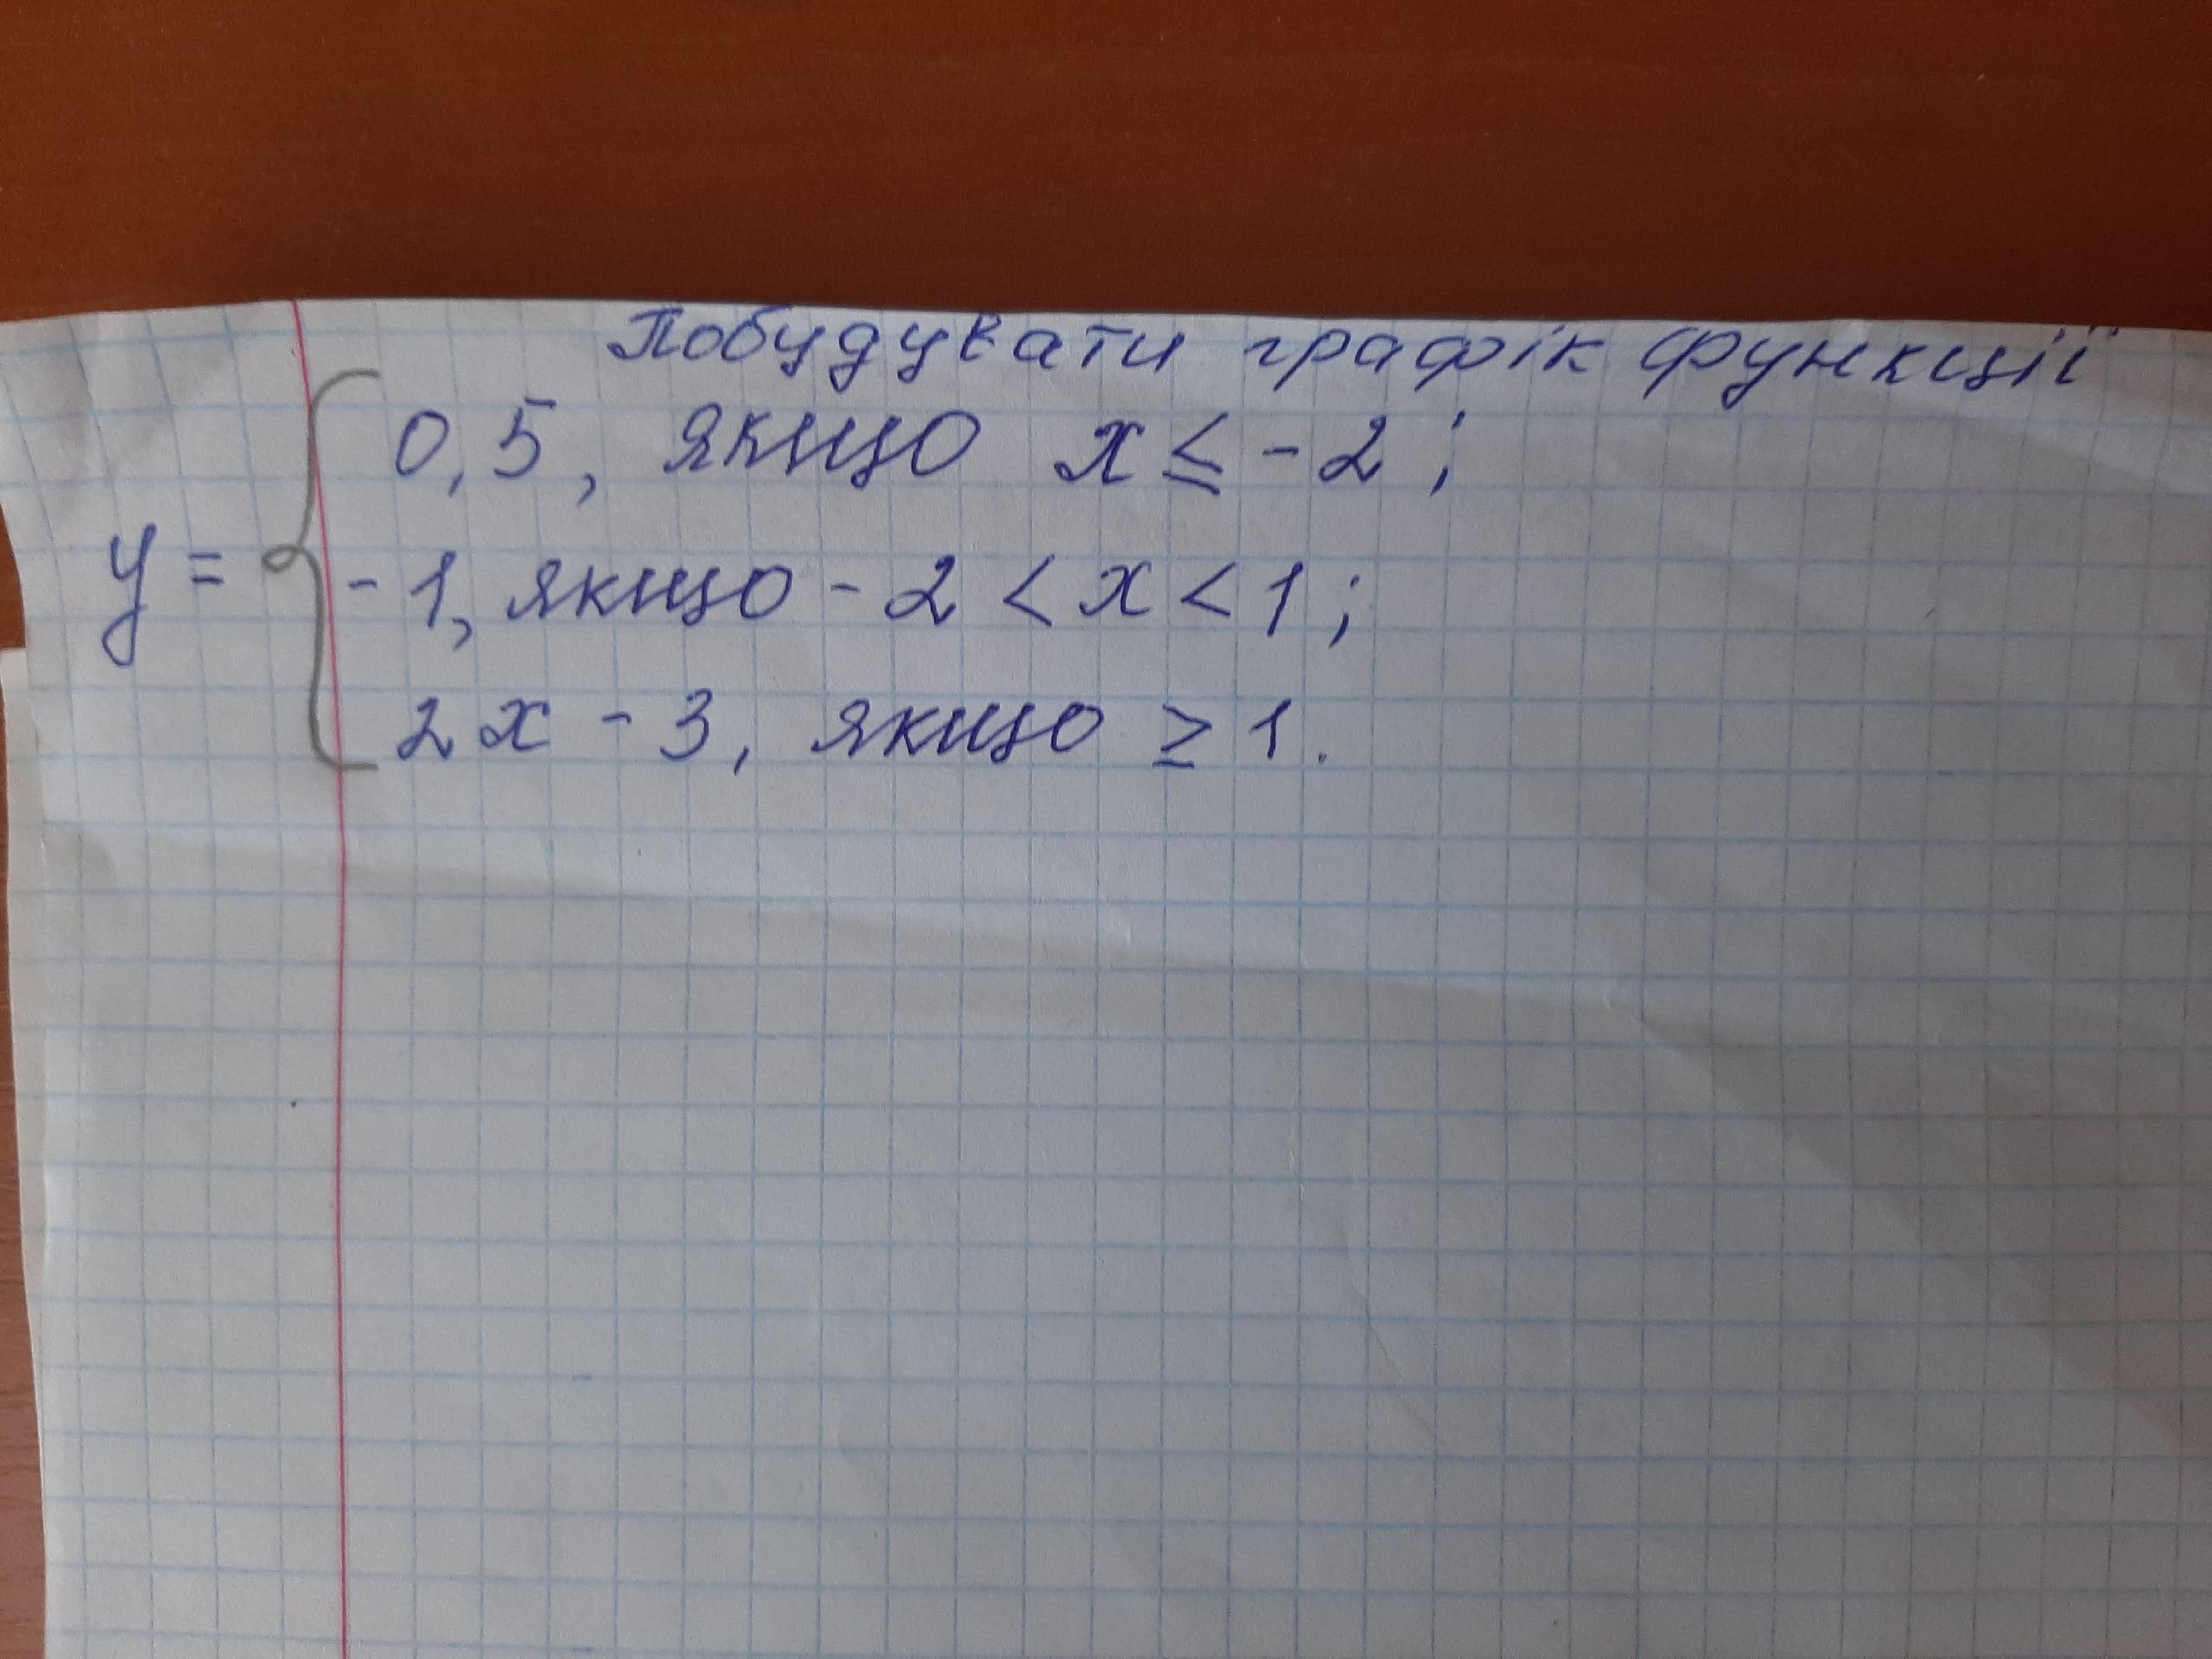 Побудувати графік функції
0,5, якщо x ≤ -2;
y = { -1, якщо -2 < x < 1;
2x - 3, якщо ≥ 1.